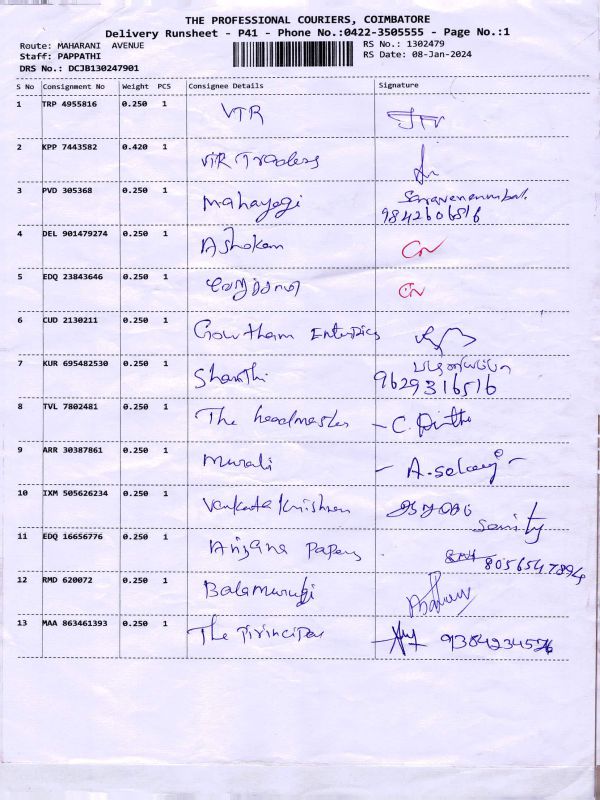 THE PROFESSIONAL COURIERS, COIMBATORE
Delivery Runsheet - P41 - Phone No.:0422-3505555 - Page No.:1
Route: MAHARANI AVENUE
RS No.: 1302479
Staff: PAPPATHI
RS Date: 08-Jan-2024
DRS No.: DCJB130247901
S No Consignment No Weight PCS Consignee Details Signature
1 TRP 4955816 0.250 1 VTR
2 KPP 7443582 0.420 1 VTR Traders
3 PVD 305368 0.250 1 Mahayogi
9842606516
4 DEL 901479274 0.250 1 Ashokan
5 EDQ 23843646 0.250 1
6 CUD 2130211 0.250 1 Gowtham Enterprices
7 KUR 695482530 0.250 1 Shanthi
9629316516
8 TVL 7802481 0.250 1 The headmaster
9 ARR 30387861 0.250 1 Murali - A.selvaj -
10 IXM 505626234 0.250 1 Venkata Krishnan
11 EDQ 16656776 0.250 1 Anjana Papers
12 RMD 620072 0.250 1 Balamurugi
13 MAA 863461393 0.250 1 The Principal